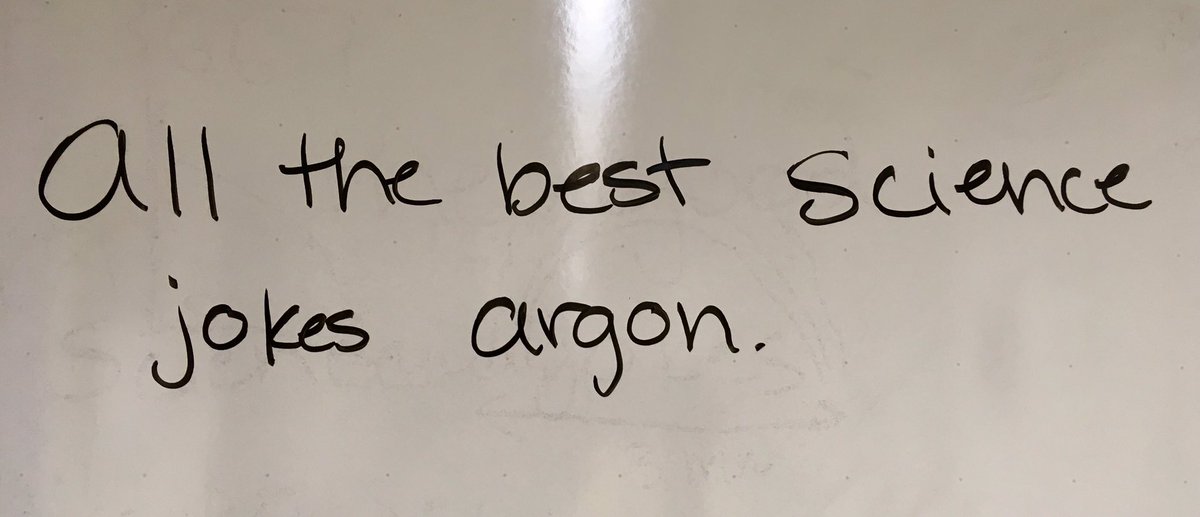 All the best science
jokes argon.